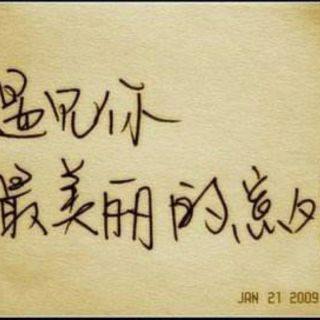 遇见你
最美丽的意外
JAN 21 2009